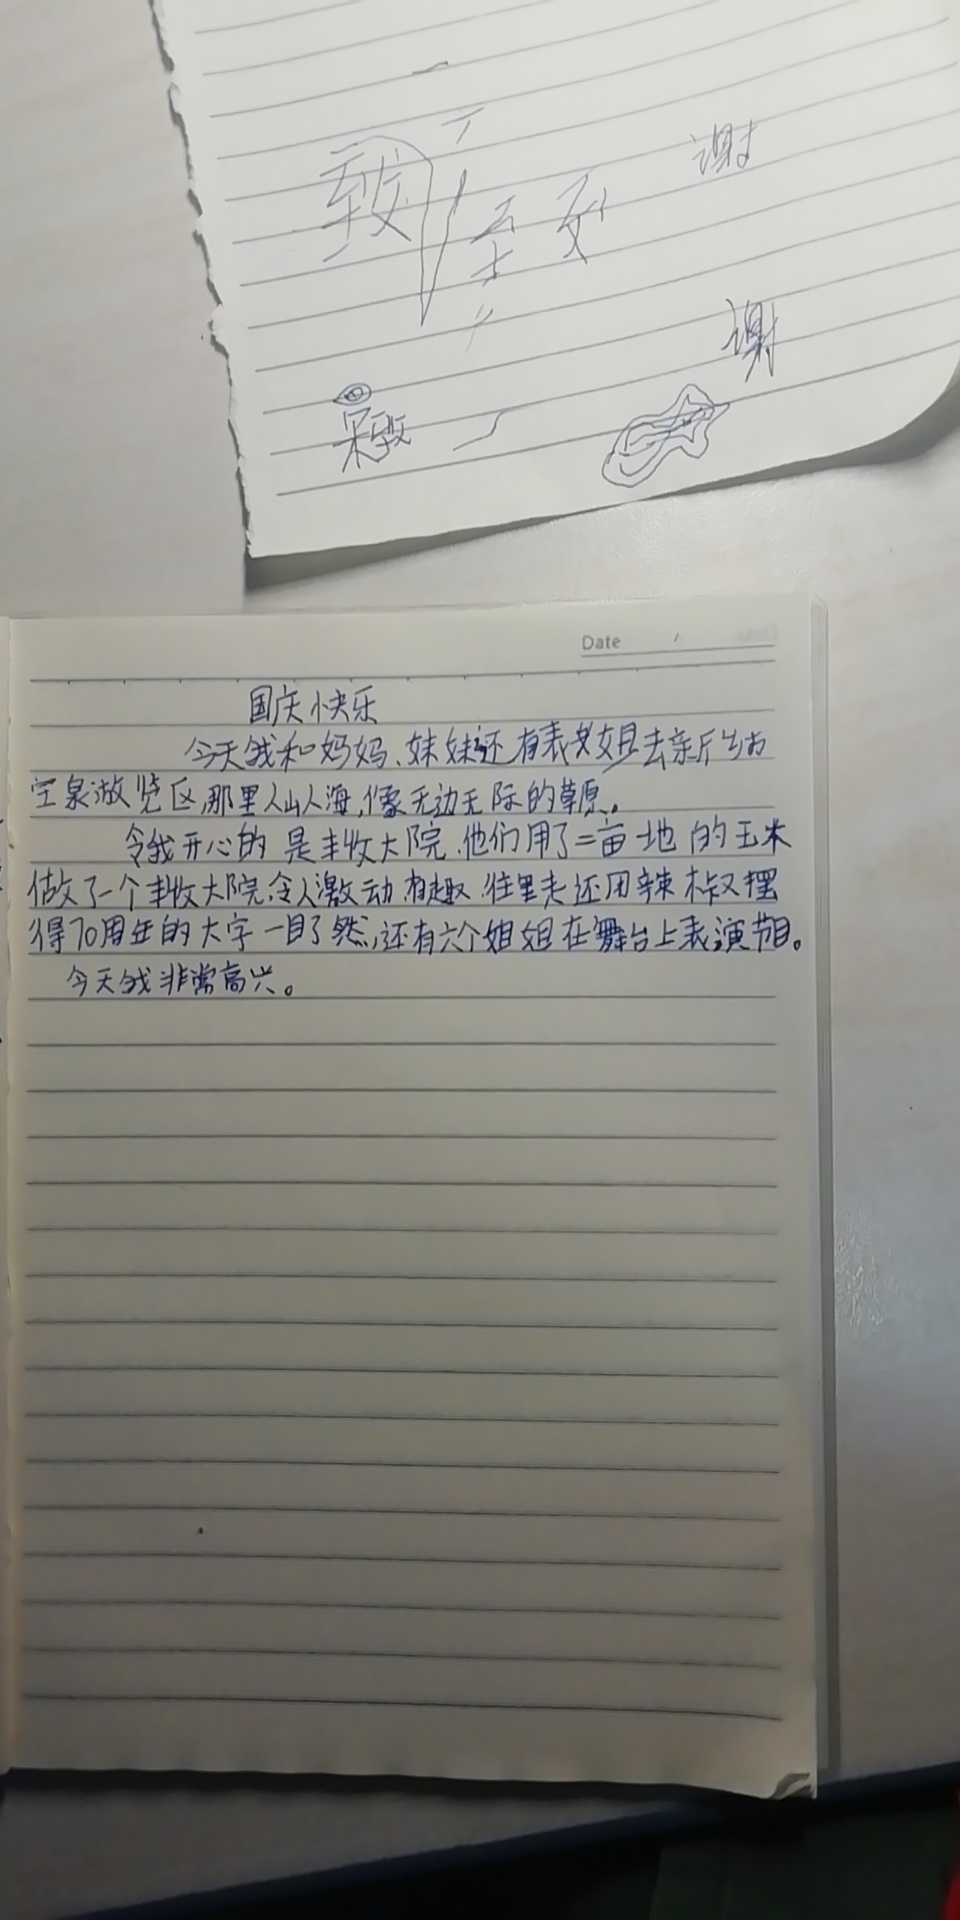 谢
至 
谢
Date
国庆快乐
今天我和妈妈、妹妹还有表姐去亲斤
宝泉游览区,那里人山人海,像无边无际的草原。
令我开心的是丰收大院,他们用了二亩地的玉米
做了一个丰收大院,令人激动有趣,往里走还用辣椒摆
得70周年的大字一目了然,还有六个姐姐在舞台上表演节目。
今天我非常高兴。